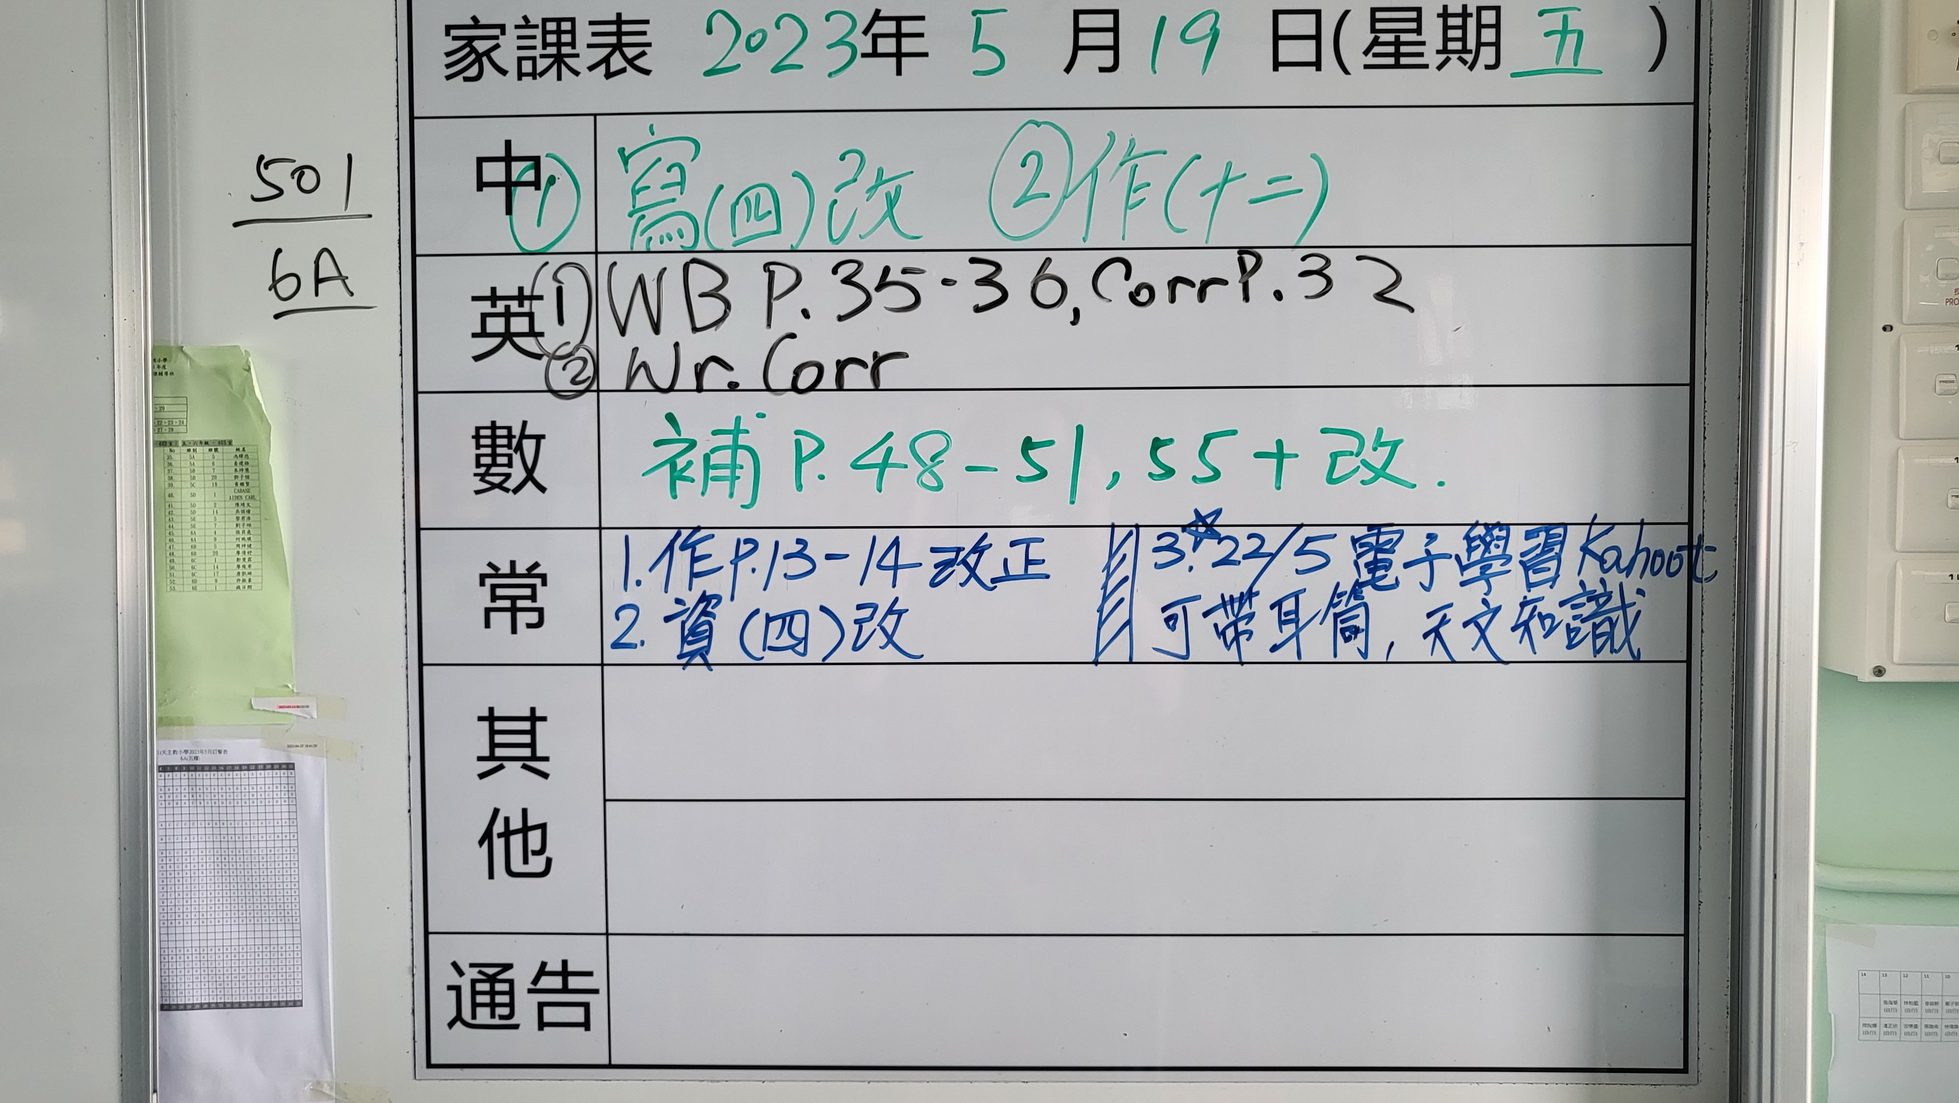 家課表 2023年 5 月 19 日(星期 五 )
501
6A
中 ① 寫(四)改 ②作(十二)
英 (1) WB P.35-36, Corr P.32
② Wr. Corr
數 補 P.48-51, 55+改.
常 1. 作P.13-14 改正
2. 資(四)改
3.☆22/5 電子學習 Kahoot:
可帶耳筒, 天文知識
其他
通告